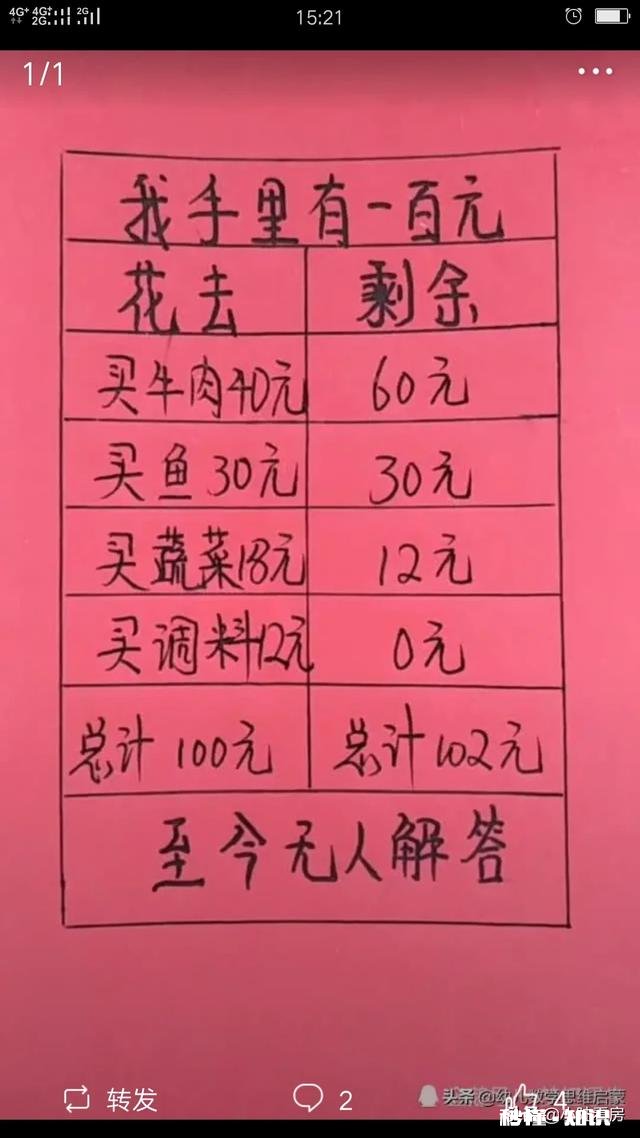 4G+ 4G+ 2G 2G 15:21
1/1
我手里有一百元
花去 剩余
买牛肉40元 60元
买鱼30元 30元
买蔬菜18元 12元
买调料12元 0元
总计100元 总计102元
至今无人解答
转发 2 4
头条